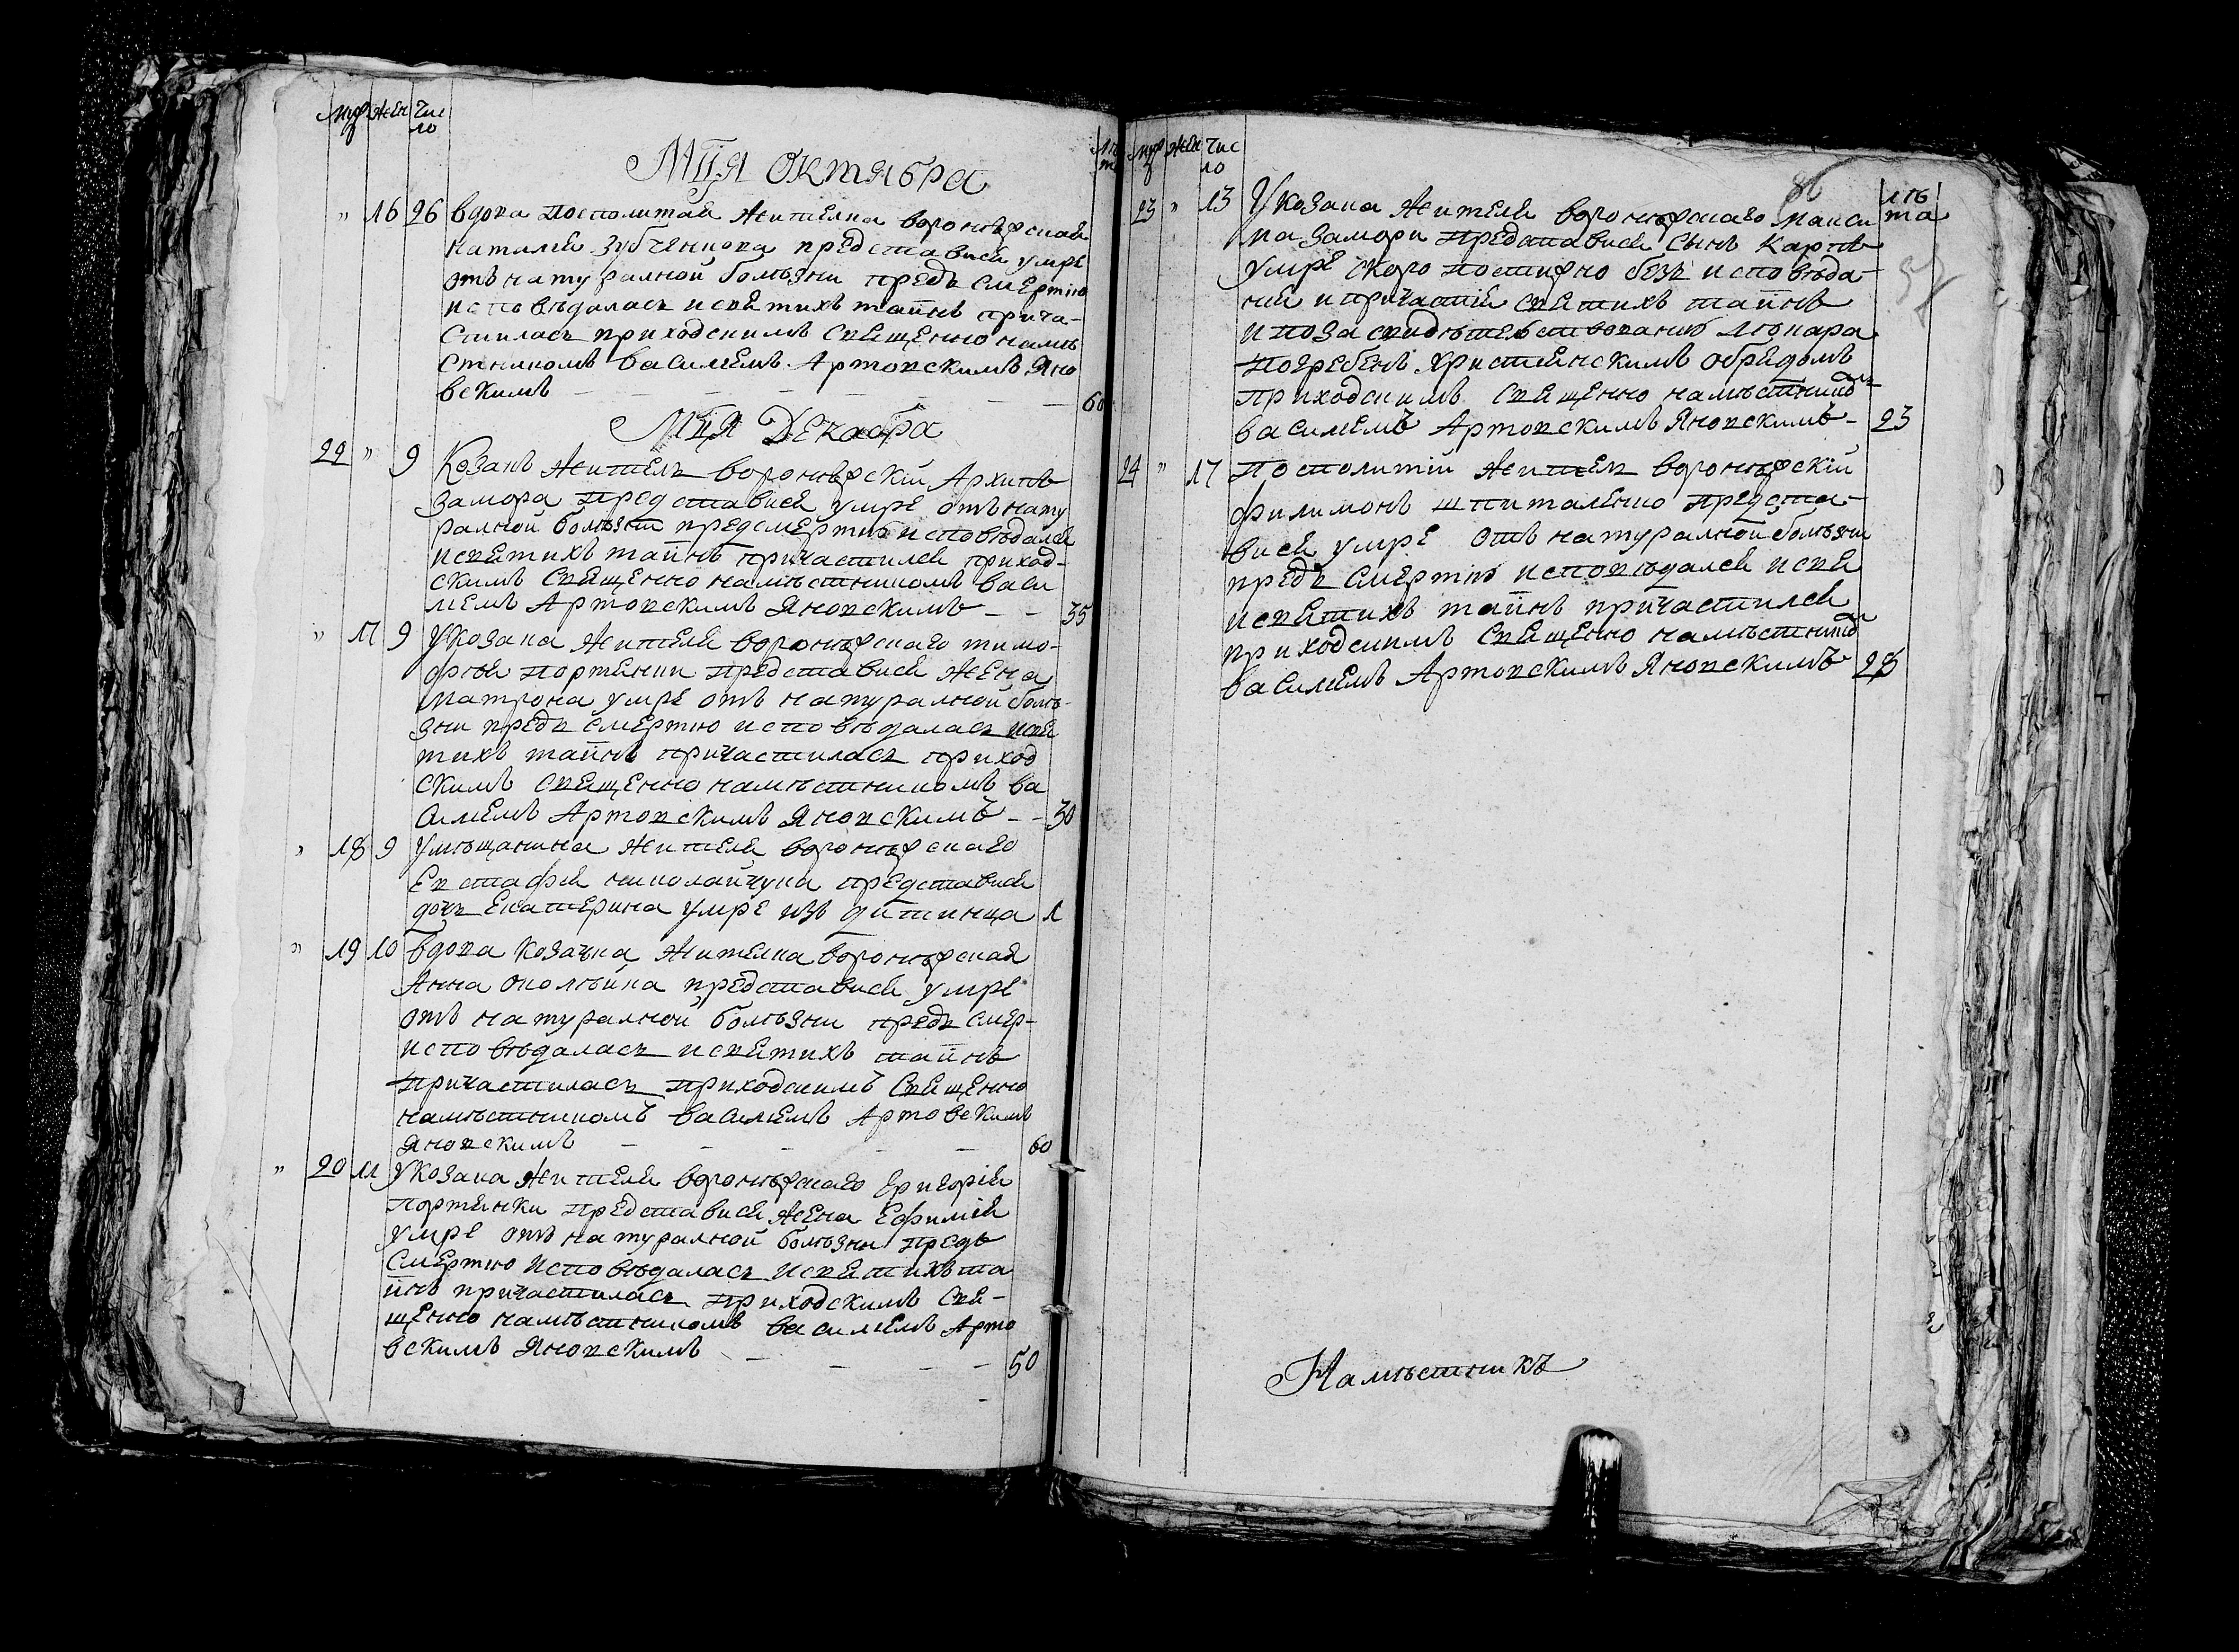 Муж Жен Чис
ло
Мця Октября
" 16 26 вдова посполитая жителка воронѣжская
наталия зубченкова представися умре
отъ натуралной болѣзни предъ смертию
исповѣдалась и святихъ тайнъ прича-
стилась приходскимъ священно намѣ
стникомъ василиемъ Артовскимъ Яно
вскимъ — 60
Мця Декабра
22 " 9 Козакъ житель воронѣжскій Архипъ
Замора представися умре отъ нату
ралной болѣзни предсмертию исповѣдался
и святихъ тайнъ причастился приход-
скимъ священно намѣстникомъ васи
лиемъ Артовскимъ Яновскимъ — 35
" 17 9 У козака жителя воронѣжскаго тимо-
фѣя портянки представися жена
матрона умре отъ натуралной болѣ-
зни предъ смертию исповѣдалась и свя
тихъ тайнъ причастилась приход
скимъ священно намѣстникомъ ва
силиемъ Артовскимъ Яновскимъ — 30
" 18 9 У мѣщанина жителя воронѣжскаго
Евстафия николайчука представися
дочь Екатерина умре изъ дитинца 1
" 19 10 вдова козачка жителка воронѣжская
Анна околѣйна представися умре
отъ натуралной болѣзни предъ смер-
исповѣдалась и святихъ тайнъ
причастилась приходскимъ священно
намѣстникомъ василиемъ Артовскимъ
Яновскимъ — 60
" 20 11 У козака жителя воронѣжскаго григорія
портянки представися жена Ефимія
умре отъ натуралной болѣзни предъ
смертию исповѣдалась и святихъ та
йнъ причастилась приходскимъ свя-
щенно намѣстникомъ василиемъ Арто
вскимъ Яновскимъ — 50
Муж Жен Чис
ло
лѣ
та
86
23 " 13 У козака жителя воронѣжскаго макси
ма Замори представися сынъ Карпъ
умре скоро постижно безъ исповѣда-
ния и причастія святихъ тайнъ
и по засвидѣтельствованию лѣкара
погребенъ християнскимъ обрядомъ
приходскимъ священно намѣстникомъ
василиемъ Артовскимъ Яновскимъ — 23
24 " 17 посполитій житель воронѣжскій
филимонъ шпиталенко предста-
вися умре отъ натуралной болѣзни
предъ смертию исповѣдался и свя
и святихъ тайнъ причастился
приходскимъ священно намѣстникомъ
василиемъ Артовскимъ Яновскимъ 28
Намѣстникъ